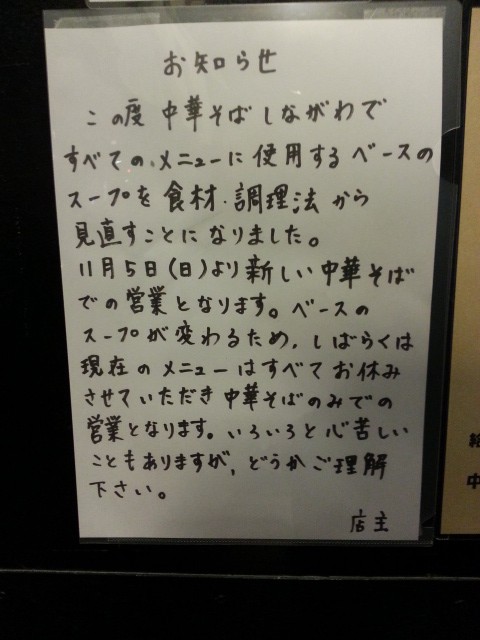 お知らせ
この度 中華そば しながわで
すべての、メニューに使用するベースの
スープを食材・調理法から
見直すことになりました。
11月5日(日)より新しい中華そば
での営業となります。ベースの
スープが変わるため、しばらくは
現在のメニューはすべてお休み
させていただき中華そばのみでの
営業となります。いろいろと心苦しい
こともありますが、どうかご理解
下さい。
店主
中